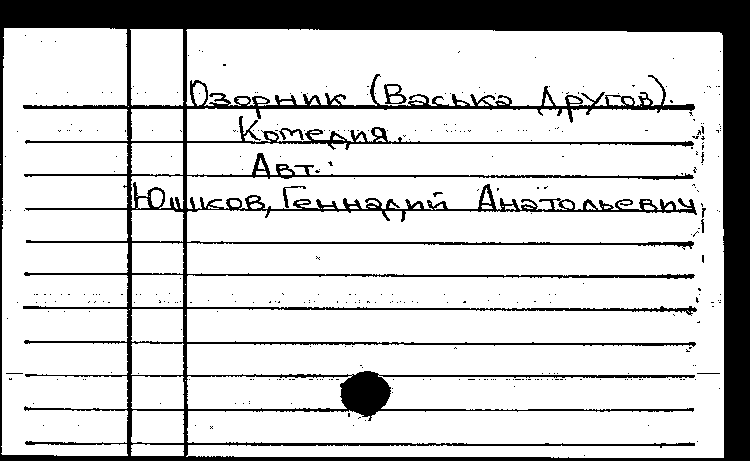 Озорник (Васька Другов).
Комедия.
Авт.:
Юшков, Геннадий Анатольевич